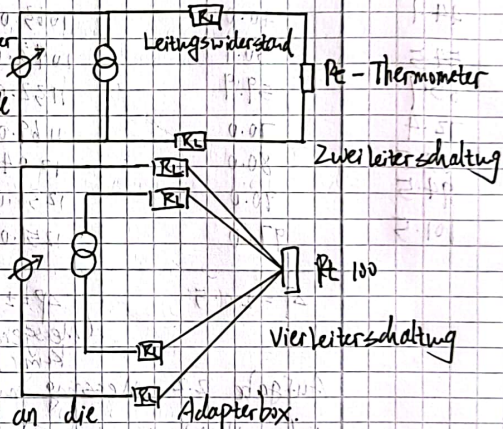 RL
Leitungswiderstand
Pt-Thermometer
RL
Zweileiterschaltung
RL
RL
Pt 100
Vierleiterschaltung
RL
RL
an die Adapterbox.